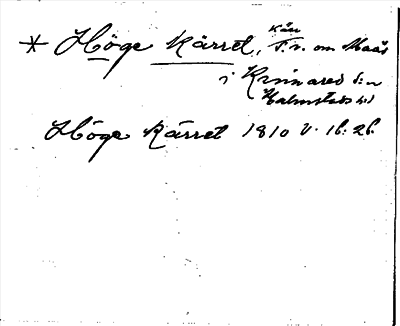 * Höge kärret, kärr S.v. om Maas
i Kinnared s:n
Halmstads hd
Höge kärret 1810 v. 16:26.